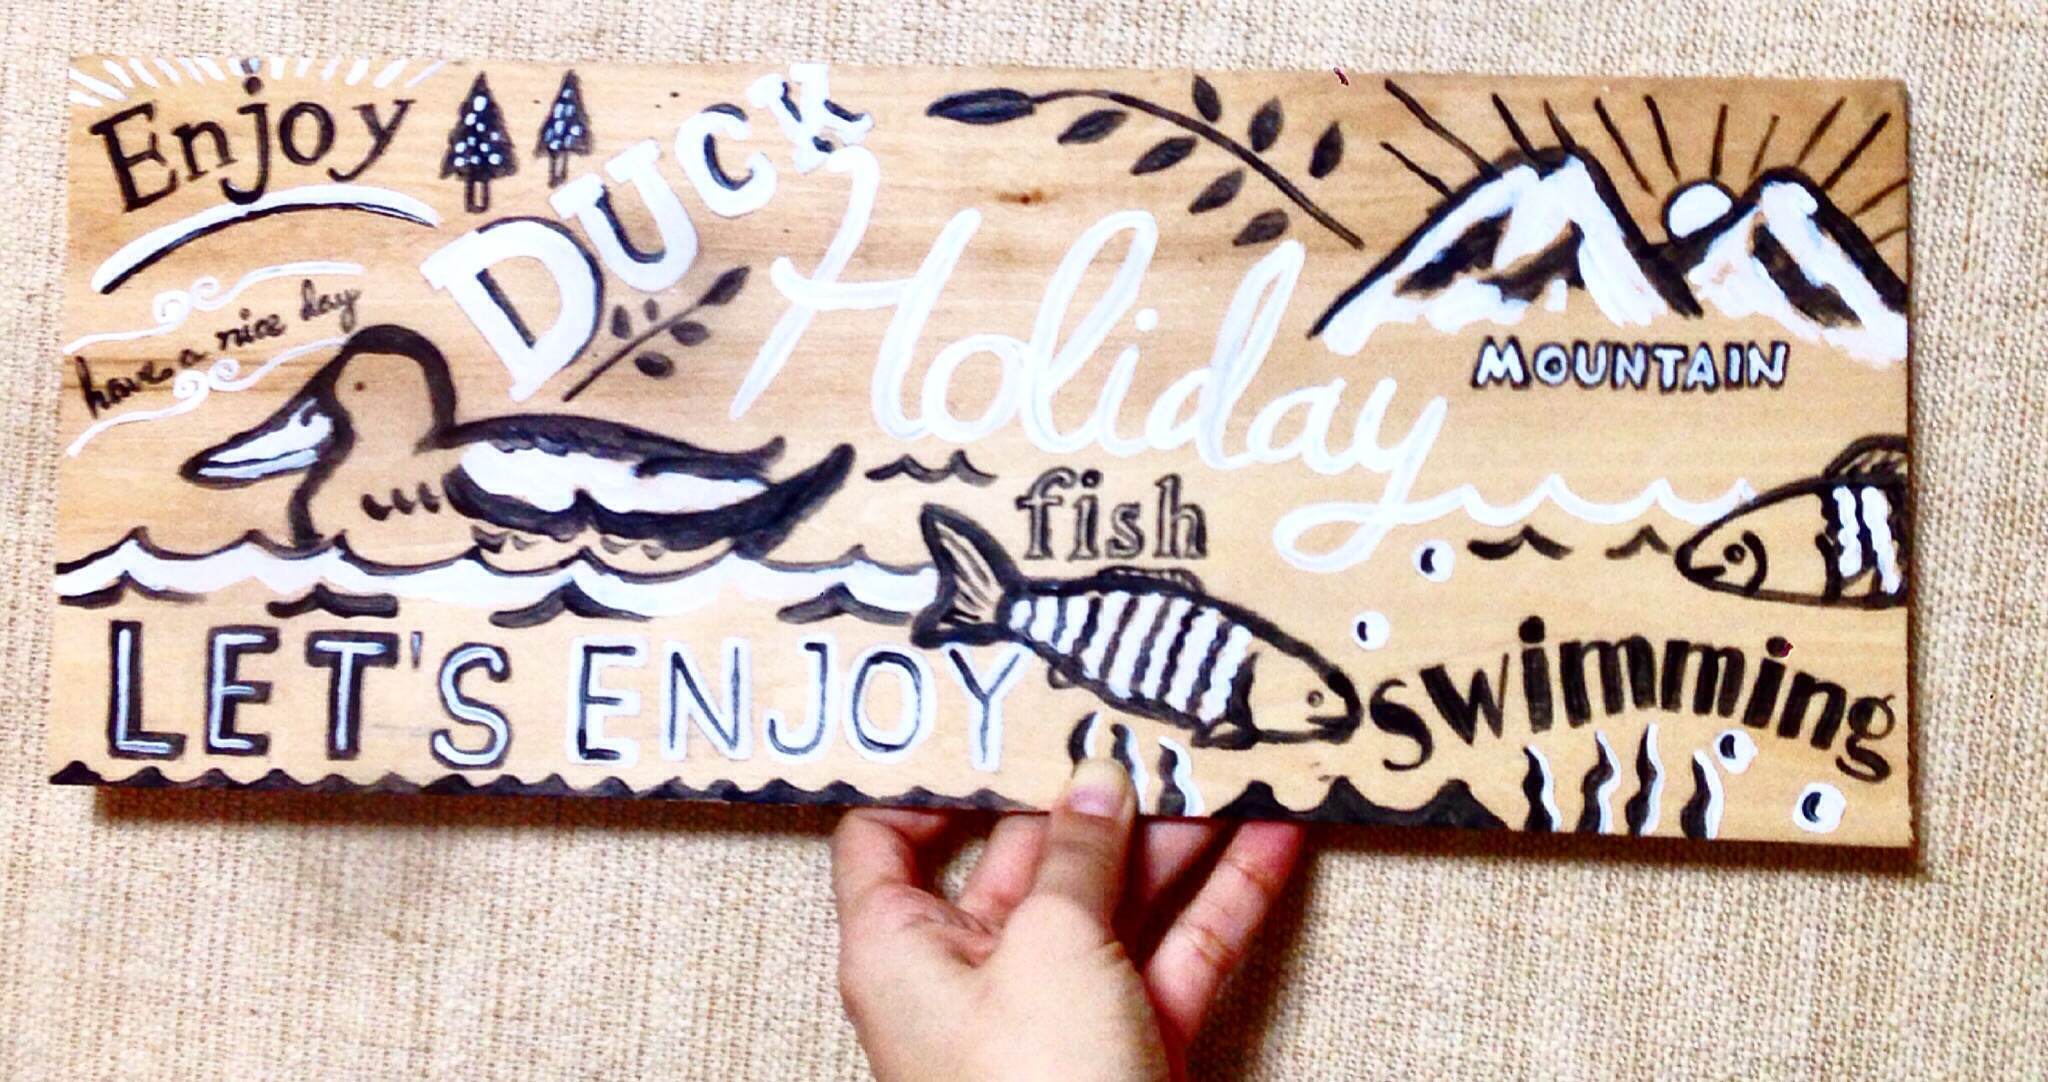 Enjoy
DUCK
Holiday
have a nice day
MOUNTAIN
fish
LET'S ENJOY
swimming